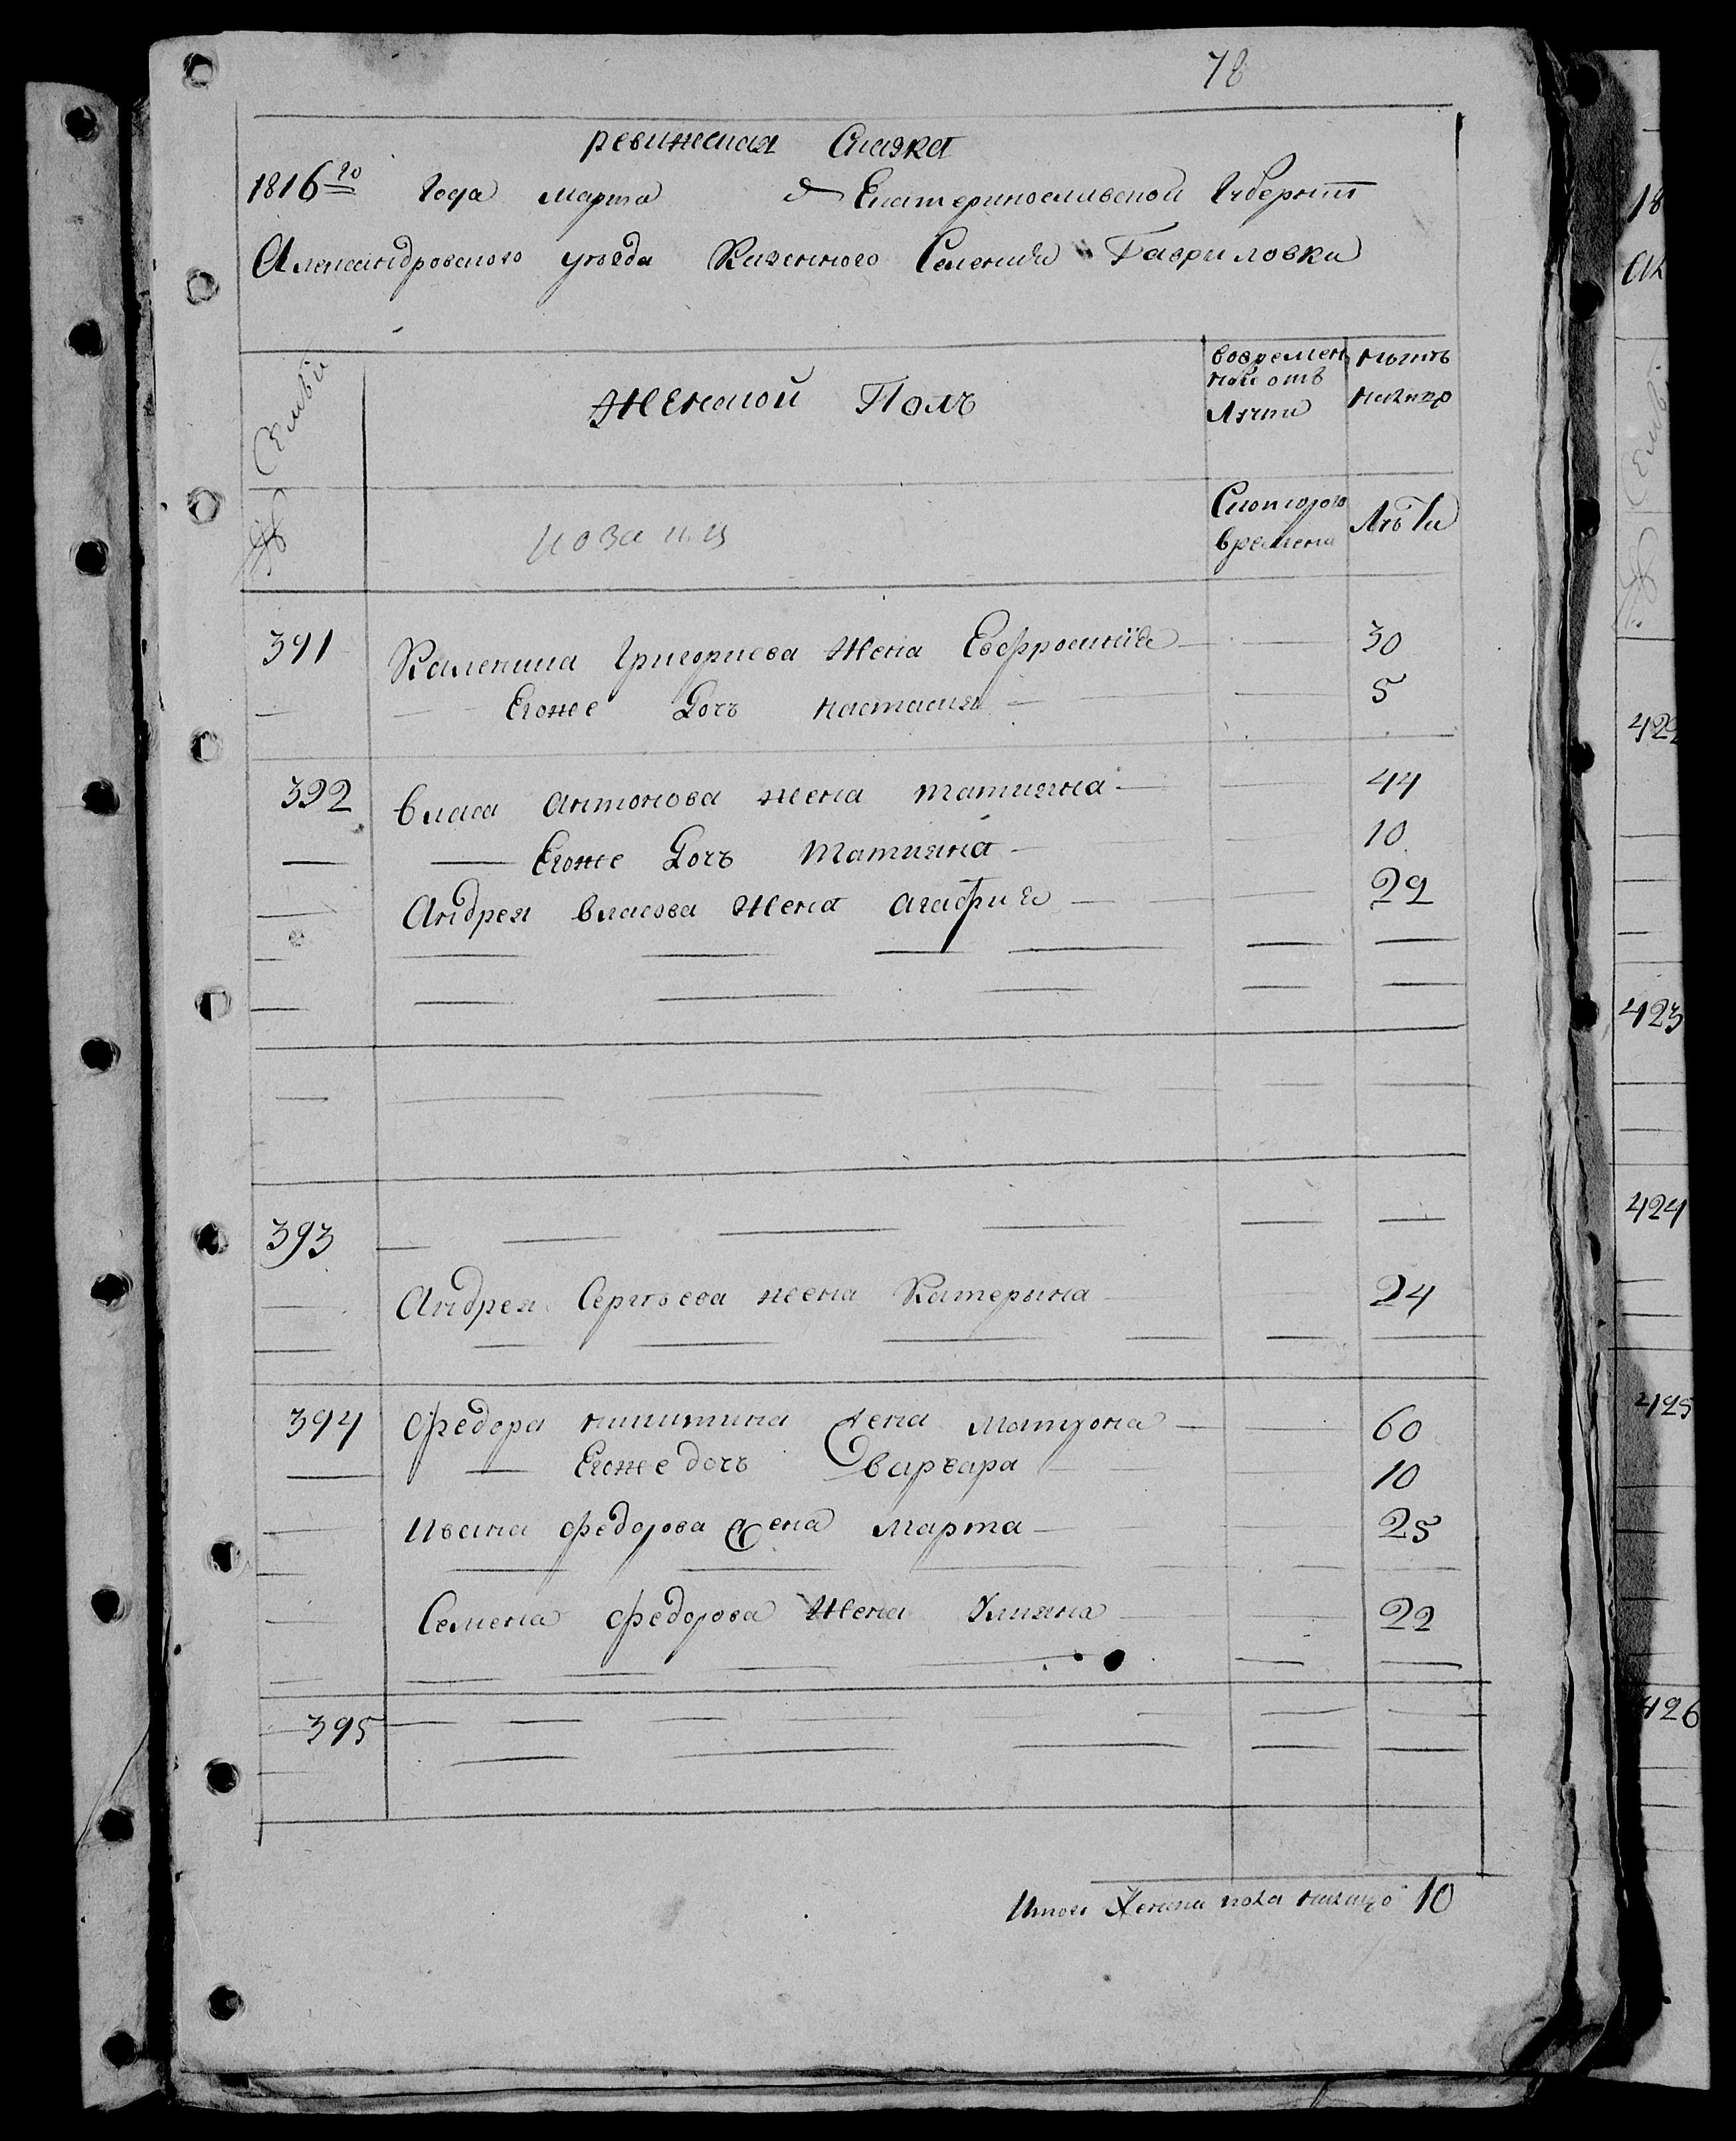 78
ревижская Сказка
1816го Года марта Екатеринославской Губернии
Александровского уезда Казенного Селения Гавриловки
Семьи
Женской Полъ
вовремен
ной от
лучки
ныне
налицо
№
Скоторого
времени
Лета
391 Каленика Григориева жена Евфросиния 30
Егоже Дочъ настасия 5
392 власа антонова жена татияна 44
Егоже Дочъ Татияна 10
Андрея власова жена агафия 29
393
Андрея Сергеева жена Катерина 24
394 федора никитина жена матрона 60
Егоже дочъ варвара 10
Ивана федорова жена марта 25
Семена федорова жена Улияна 22
395
Итого женска пола налицо 10
18
Ал
Семьи
№
422
423
424
425
426